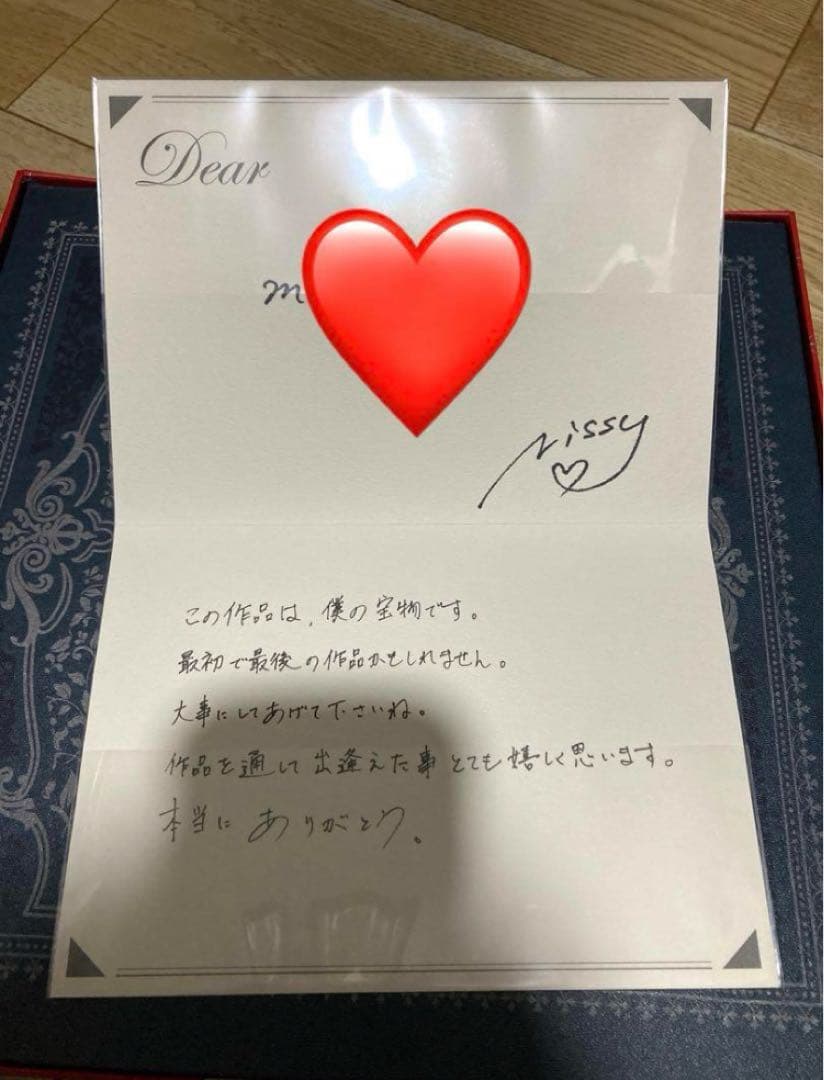 Dear
m
Nissy
この作品は、僕の宝物です。
最初で最後の作品かもしれません。
大事にしてあげて下さいね。
作品を通して出逢えた事とても嬉しく思います。
本当にありがとう。